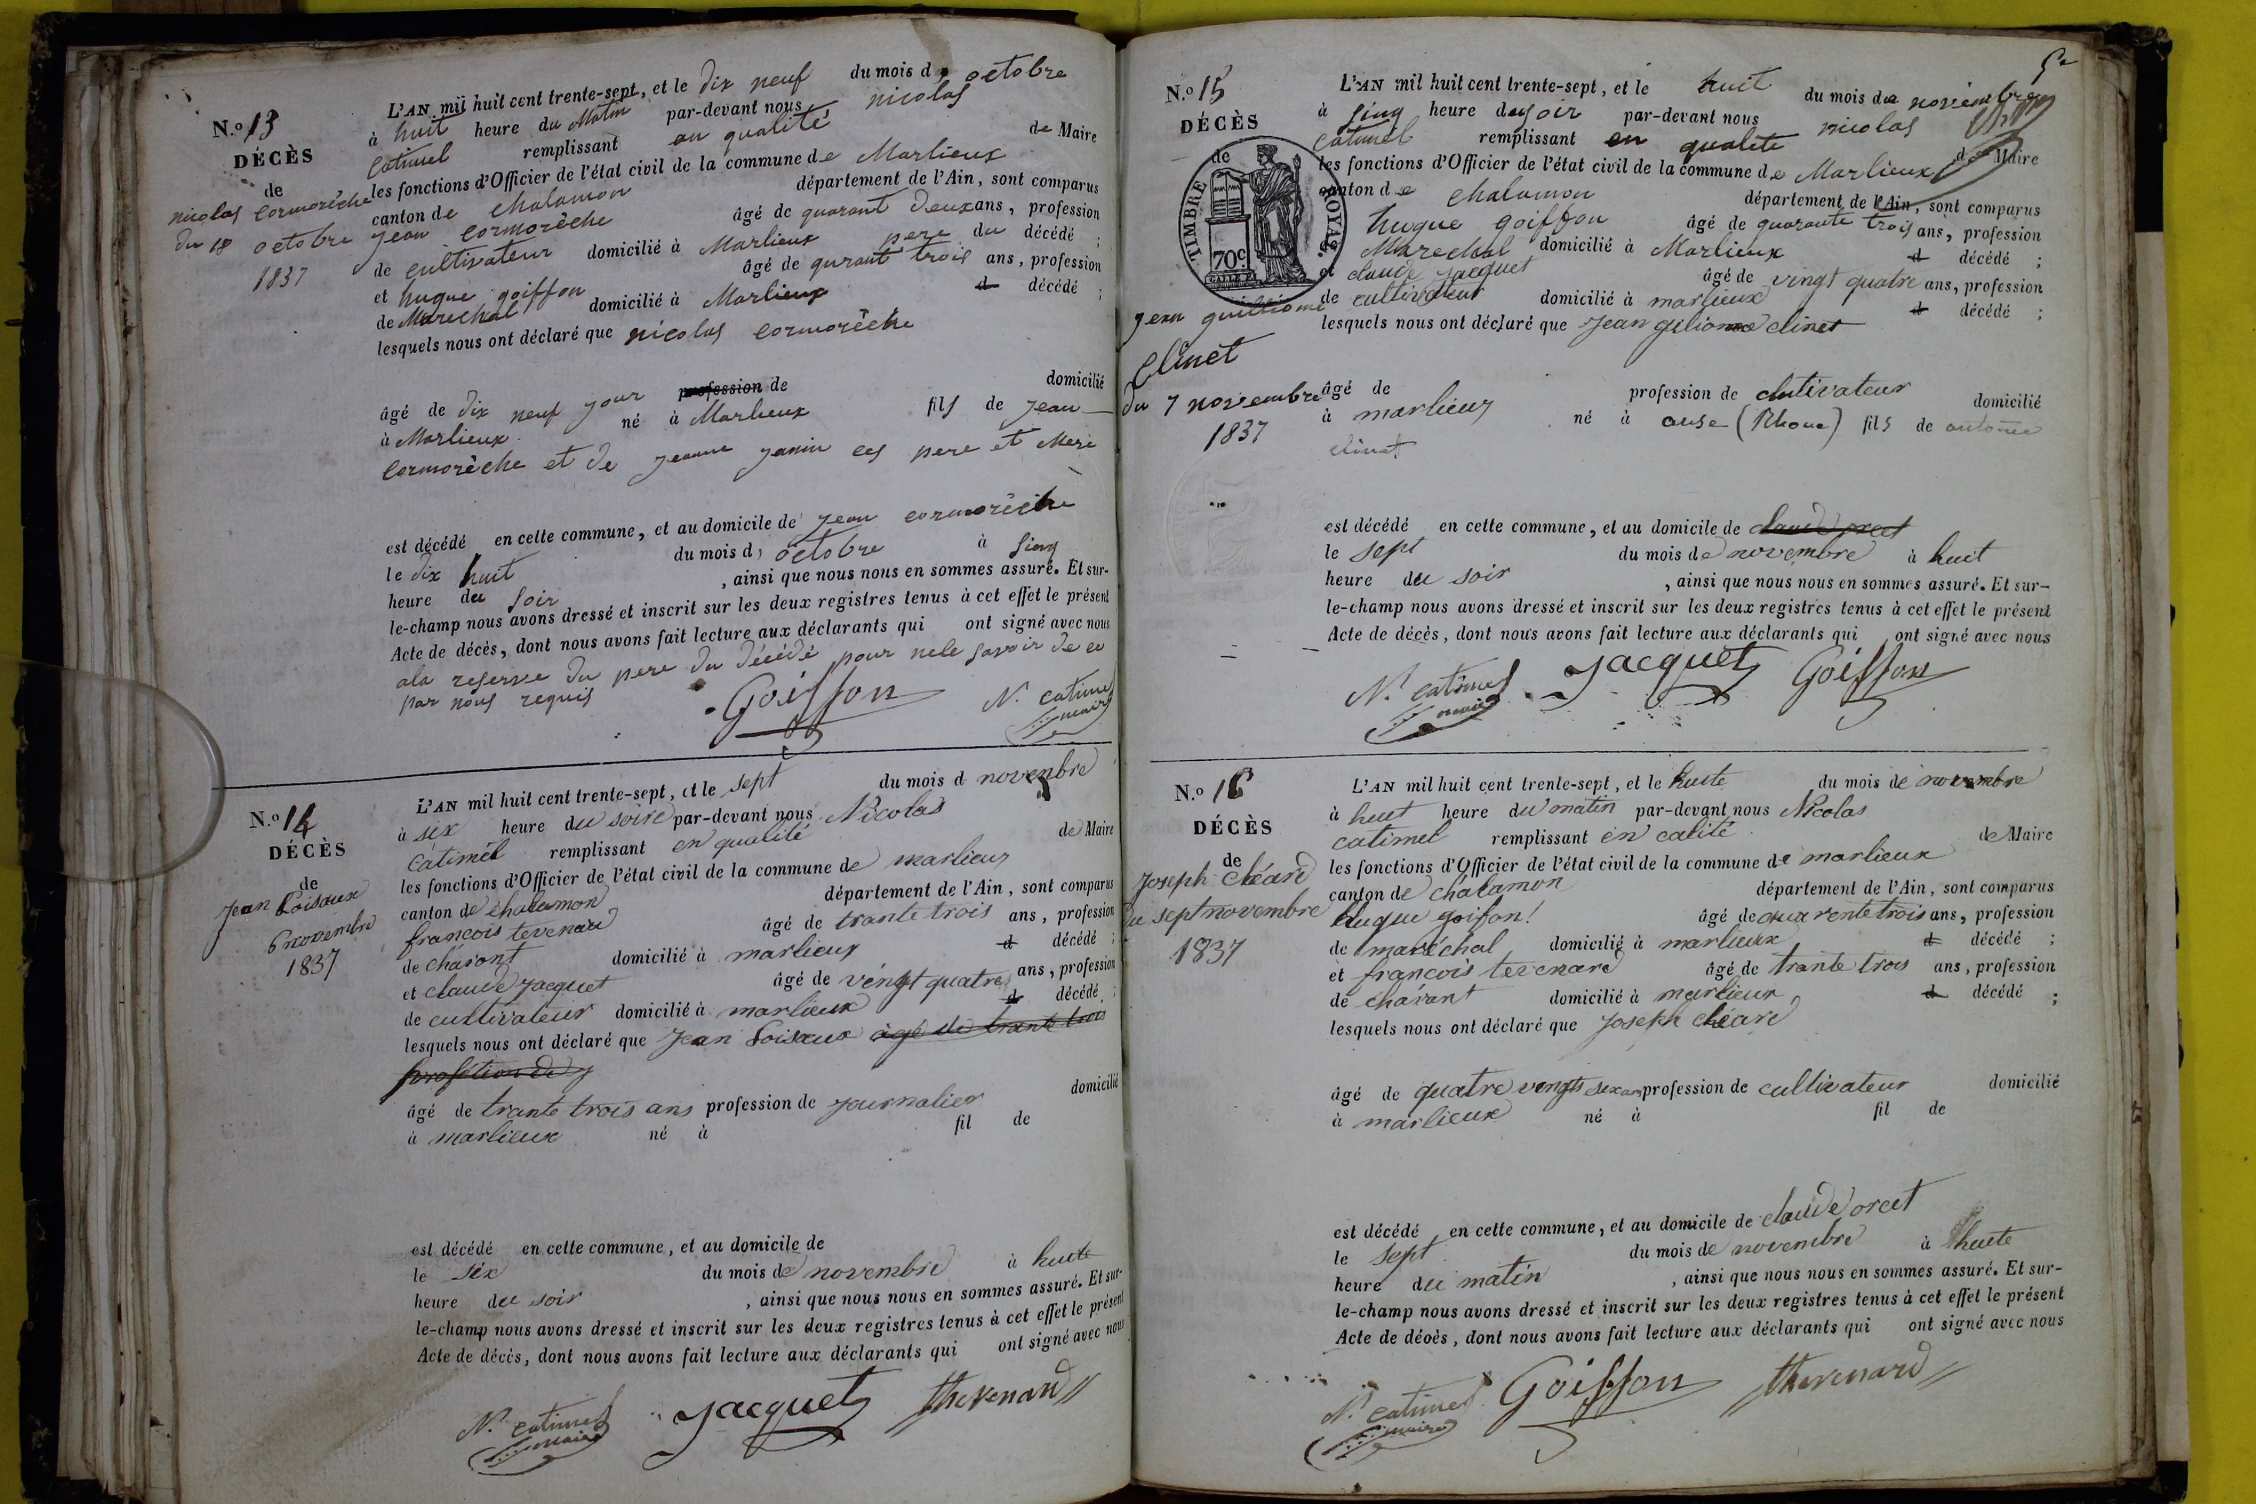 N.o 13
DÉCÈS
de
nicolas cormorèche
du 18 octobre
1837
L'AN mil huit cent trente-sept, et le dix neuf du mois d octobre
à huit heure du Matin par-devant nous nicolas
Catimel remplissant en qualité de Maire
les fonctions d'Officier de l'état civil de la commune de Marlieux
canton de chalamon département de l'Ain, sont comparus
jean cormorèche âgé de quarant deux ans, profession
de cultivateur domicilié à Marlieux pere du décédé ;
et hugue goiffon âgé de qurant trois ans, profession
de Marechal domicilié à Marlieux d décédé ;
lesquels nous ont déclaré que nicolas cormorèche
âgé de dix neuf jour profession de domicilié
à Marlieux né à Marlieux fils de jean
cormorèche et de jeanne janin ces pere et Mere
est décédé en cette commune, et au domicile de jean cormorèche
le dix huit du mois d octobre à sinq
heure du soir , ainsi que nous nous en sommes assuré. Et sur-
le-champ nous avons dressé et inscrit sur les deux registres tenus à cet effet le présent
Acte de décès, dont nous avons fait lecture aux déclarants qui ont signé avec nous
ala reserve du pere du décédé pour nele savoir de ce
par nous requis
Goiffon N. catimel
maire
N.o 14
DÉCÈS
de
jean Loisaux
6 novembre
1837
L'AN mil huit cent trente-sept, et le sept du mois d novembre
à six heure du soire par-devant nous Nicolas
Catimel remplissant en qualité de Maire
les fonctions d'Officier de l'état civil de la commune de marlieux
canton de chalamon département de l'Ain, sont comparus
francois tevenard âgé de trante trois ans, profession
de charont domicilié à marlieux d décédé ;
et claude jacquet âgé de vengt quatre ans, profession
de cultivateur domicilié à marlieux d décédé ;
lesquels nous ont déclaré que jean Loisaux agé de trante trois
profetion de
âgé de trante trois ans profession de journalier domicilié
à marlieux né à fil de
est décédé en cette commune, et au domicile de
le six du mois de novembre à huite
heure du soir , ainsi que nous nous en sommes assuré. Et sur-
le-champ nous avons dressé et inscrit sur les deux registres tenus à cet effet le présent
Acte de décès, dont nous avons fait lecture aux déclarants qui ont signé avec nous
N. catimel jacquet thevenard
maire
N.o 15
DÉCÈS
de
TIMBRE ROYAL.
70c
jean guilliome
Clinet
du 7 novembre
1837
L'AN mil huit cent trente-sept, et le huit du mois de novembre
à sinq heure du soir par-devant nous nicolas
catimel remplissant en qualité de Maire
les fonctions d'Officier de l'état civil de la commune de Marlieux
canton de chalamon département de l'Ain, sont comparus
hugue goiffon âgé de quarante trois ans, profession
Marechal domicilié à Marlieux d décédé ;
et claude jacquet âgé de vingt quatre ans, profession
de cultivateur domicilié à marlieux d décédé ;
lesquels nous ont déclaré que jean giliome clinet
âgé de profession de clutivateur domicilié
à marlieux né à anse (Rhone) fils de antoine
clinet
est décédé en cette commune, et au domicile de claude orcet
le sept du mois de novembre à huit
heure du soir , ainsi que nous nous en sommes assuré. Et sur-
le-champ nous avons dressé et inscrit sur les deux registres tenus à cet effet le présent
Acte de décès, dont nous avons fait lecture aux déclarants qui ont signé avec nous
N. catimel jacquet Goiffon
maire
N.o 16
DÉCÈS
de
joseph cléard
du sept novembre
1837
L'AN mil huit cent trente-sept, et le huite du mois de novembre
à huet heure du matin par-devant nous Nicolas
catimel remplissant en calité de Maire
les fonctions d'Officier de l'état civil de la commune de marlieux
canton de chalamon département de l'Ain, sont comparus
hugue goifon âgé de quarente trois ans, profession
de maréchal domicilié à marlieux d décédé ;
et francois tevenard âgé de trante trois ans, profession
de charant domicilié à marlieux d décédé ;
lesquels nous ont déclaré que joseph cléard
âgé de quatre vengts six ans profession de cultivateur domicilié
à marlieux né à fil de
est décédé en cette commune, et au domicile de claude orcet
le sept du mois de novembre à huite
heure du matin , ainsi que nous nous en sommes assuré. Et sur-
le-champ nous avons dressé et inscrit sur les deux registres tenus à cet effet le présent
Acte de décès, dont nous avons fait lecture aux déclarants qui ont signé avec nous
N. catimel Goiffon thevenard
maire